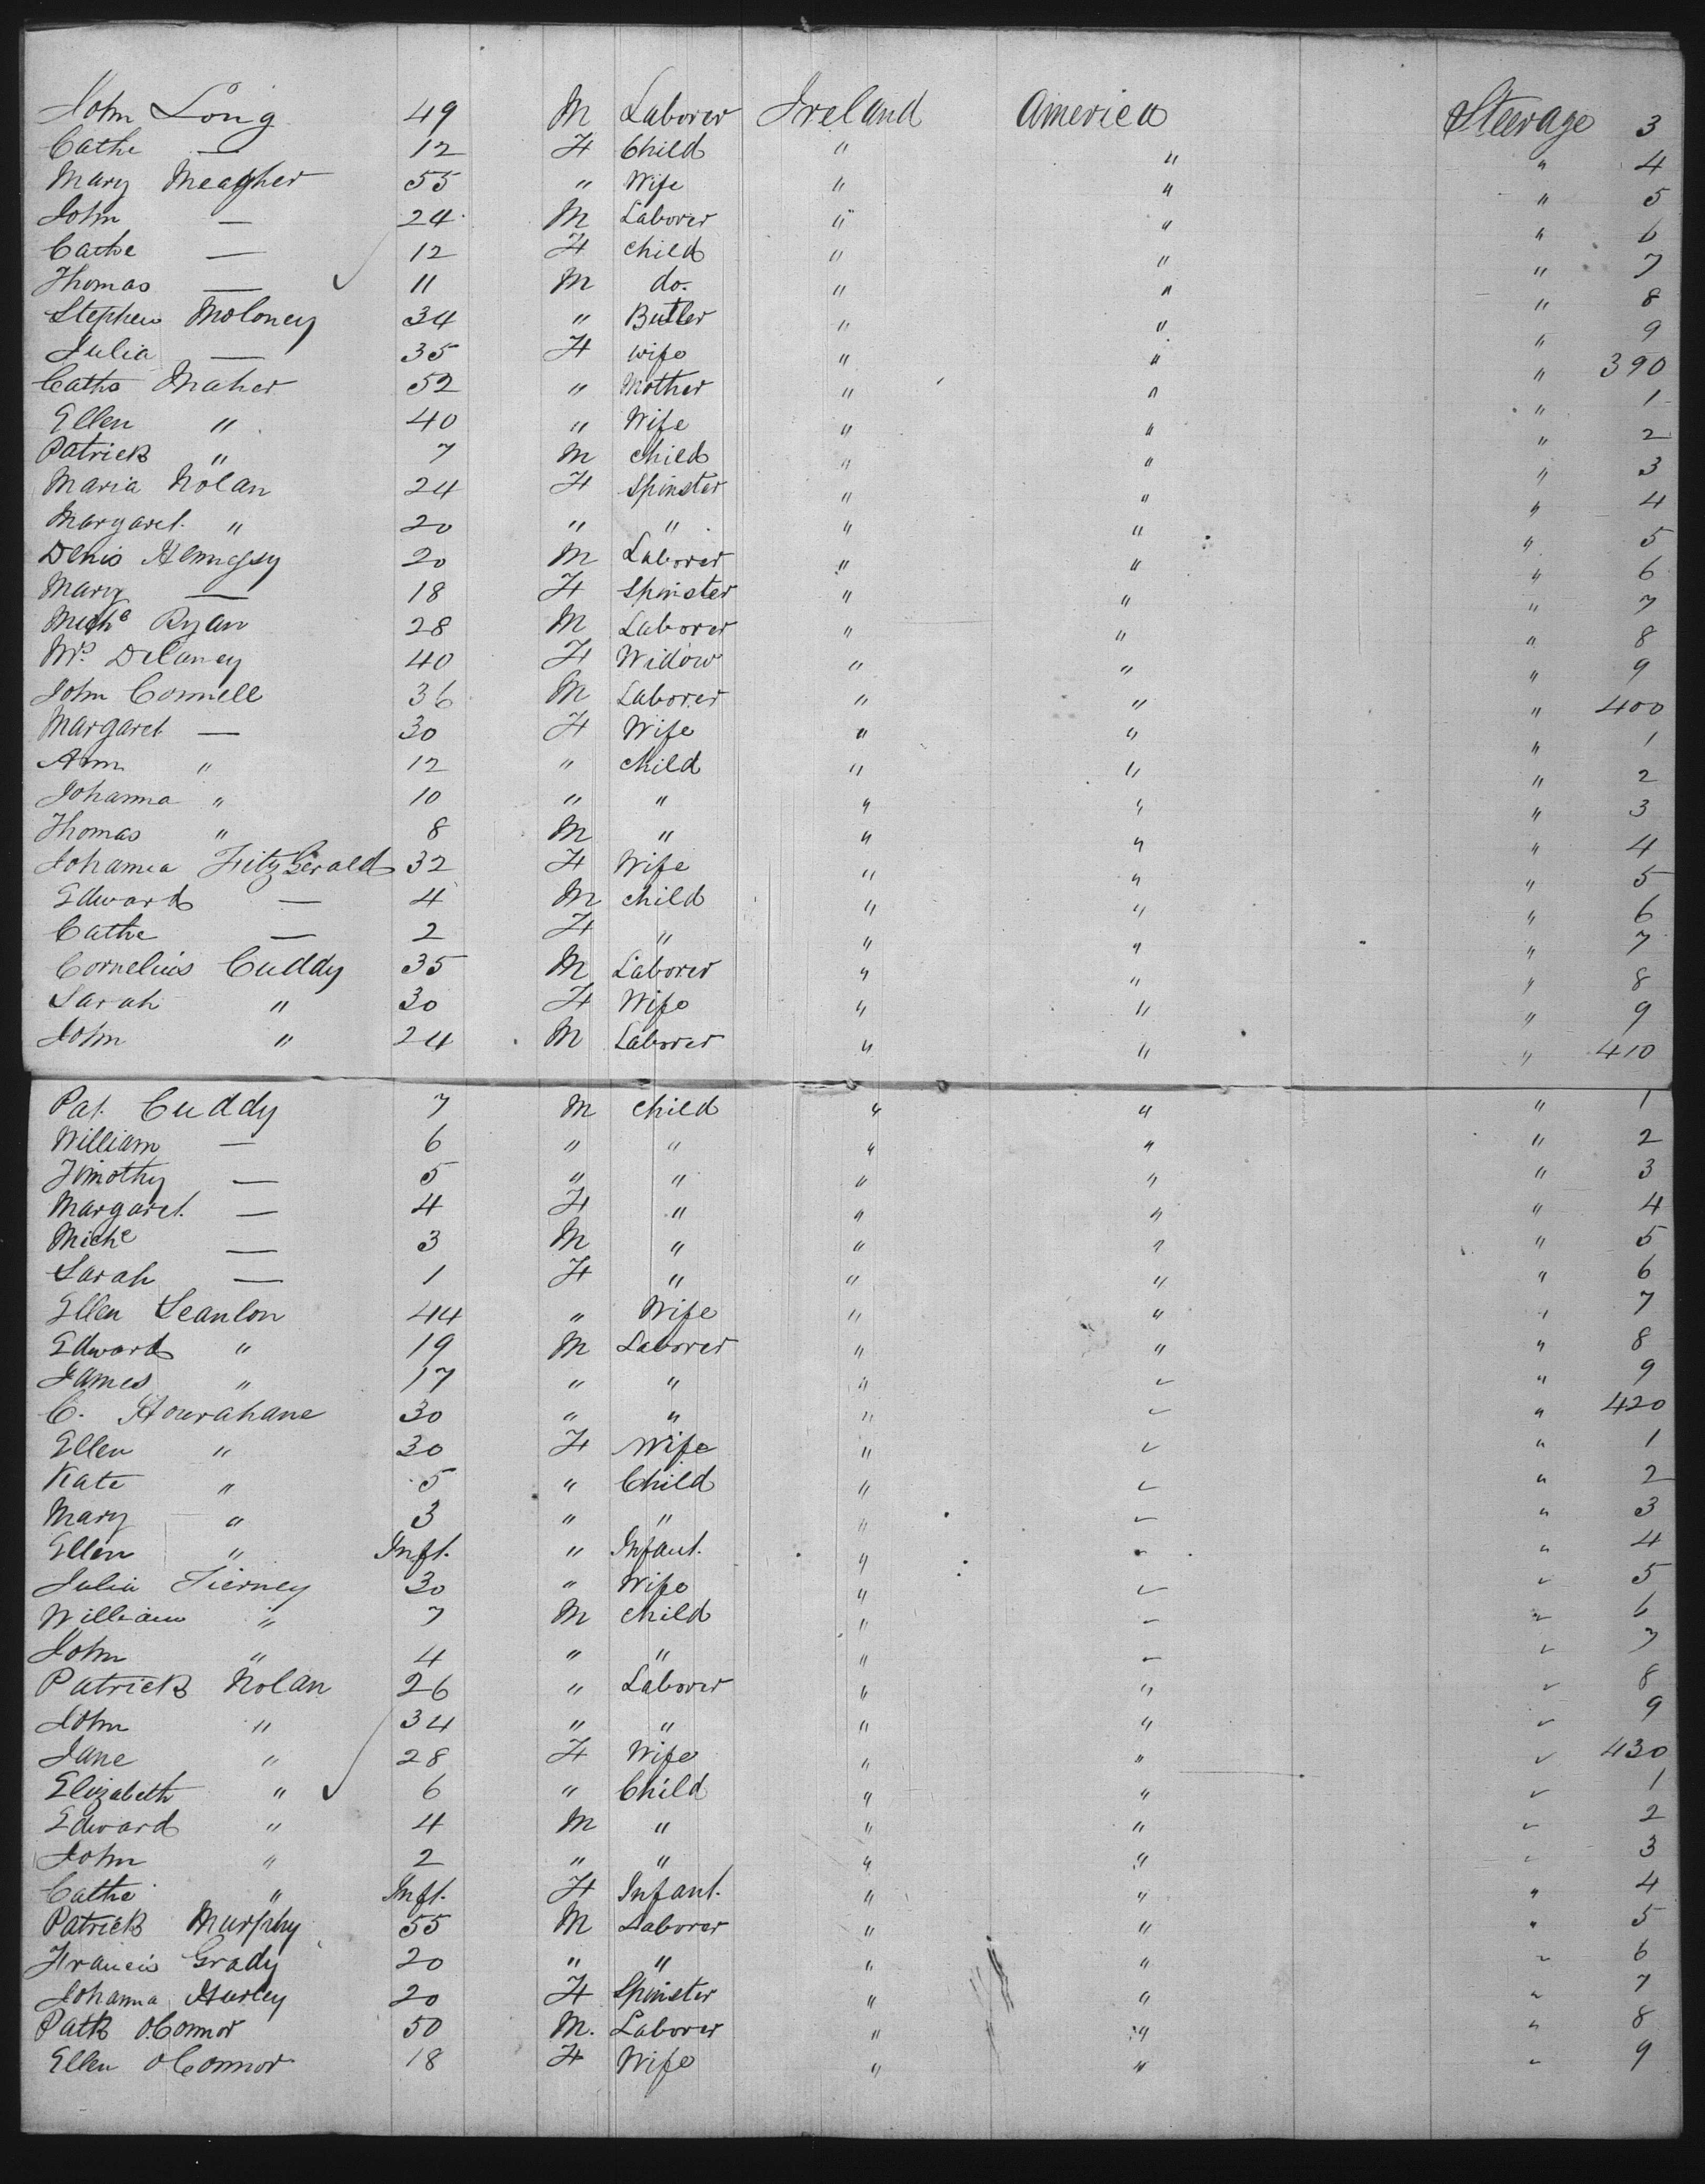 John Long 49 M Laborer Ireland America Steerage 3
Cathe — 12 F Child " " " 4
Mary Meagher 55 " Wife " " " 5
John — 24 M Laborer " " " 6
Cathe — 12 F Child " " " 7
Thomas — 11 M do. " " " 8
Stephen Moloney 34 " Butler " " " 9
Julia — 35 F Wife " " " 390
Cathe Maher 52 " Mother " " " 1
Ellen " 40 " Wife " " " 2
Patrick " 7 M Child " " " 3
Maria Nolan 24 F Spinster " " " 4
Margaret " 20 " " " " " 5
Denis Hennessy 20 M Laborer " " " 6
Mary — 18 F Spinster " " " 7
Miche Ryan 28 M Laborer " " " 8
Mrs. Delaney 40 F Widow " " " 9
John Connell 36 M Laborer " " " 400
Margaret — 30 F Wife " " " 1
Ann " 12 " Child " " " 2
Johanna " 10 " " " " " 3
Thomas " 8 M " " " " 4
Johanna FitzGerald 32 F Wife " " " 5
Edward — 4 M Child " " " 6
Cathe — 2 F " " " " 7
Cornelius Cuddy 35 M Laborer " " " 8
Sarah " 30 F Wife " " " 9
John " 24 M Laborer " " " 410
Pat. Cuddy 7 M Child " " " 1
William — 6 " " " " " 2
Timothy — 5 " " " " " 3
Margaret — 4 F " " " " 4
Miche — 3 M " " " " 5
Sarah — 1 F " " " " 6
Ellen Scanlon 44 " Wife " " " 7
Edward " 19 M Laborer " " " 8
James " 17 " " " " " 9
C. Hourahane 30 " " " " " 420
Ellen " 30 F Wife " " " 1
Kate " 5 " Child " " " 2
Mary " 3 " " " " " 3
Ellen " Inft. " Infant. " " " 4
Julia Tierney 30 " Wife " " " 5
William " 7 M Child " " " 6
John " 4 " " " " " 7
Patrick Nolan 26 " Laborer " " " 8
John " 34 " " " " " 9
Jane " 28 F Wife " " " 430
Elizabeth " 6 " Child " " " 1
Edward " 4 M " " " " 2
John " 2 " " " " " 3
Cathe " Inft. F Infant. " " " 4
Patrick Murphy 55 M Laborer " " " 5
Francis Grady 20 " " " " " 6
Johanna Hurley 20 F Spinster " " " 7
Patk OConnor 50 M. Laborer " " " 8
Ellen OConnor 18 F Wife " " " 9